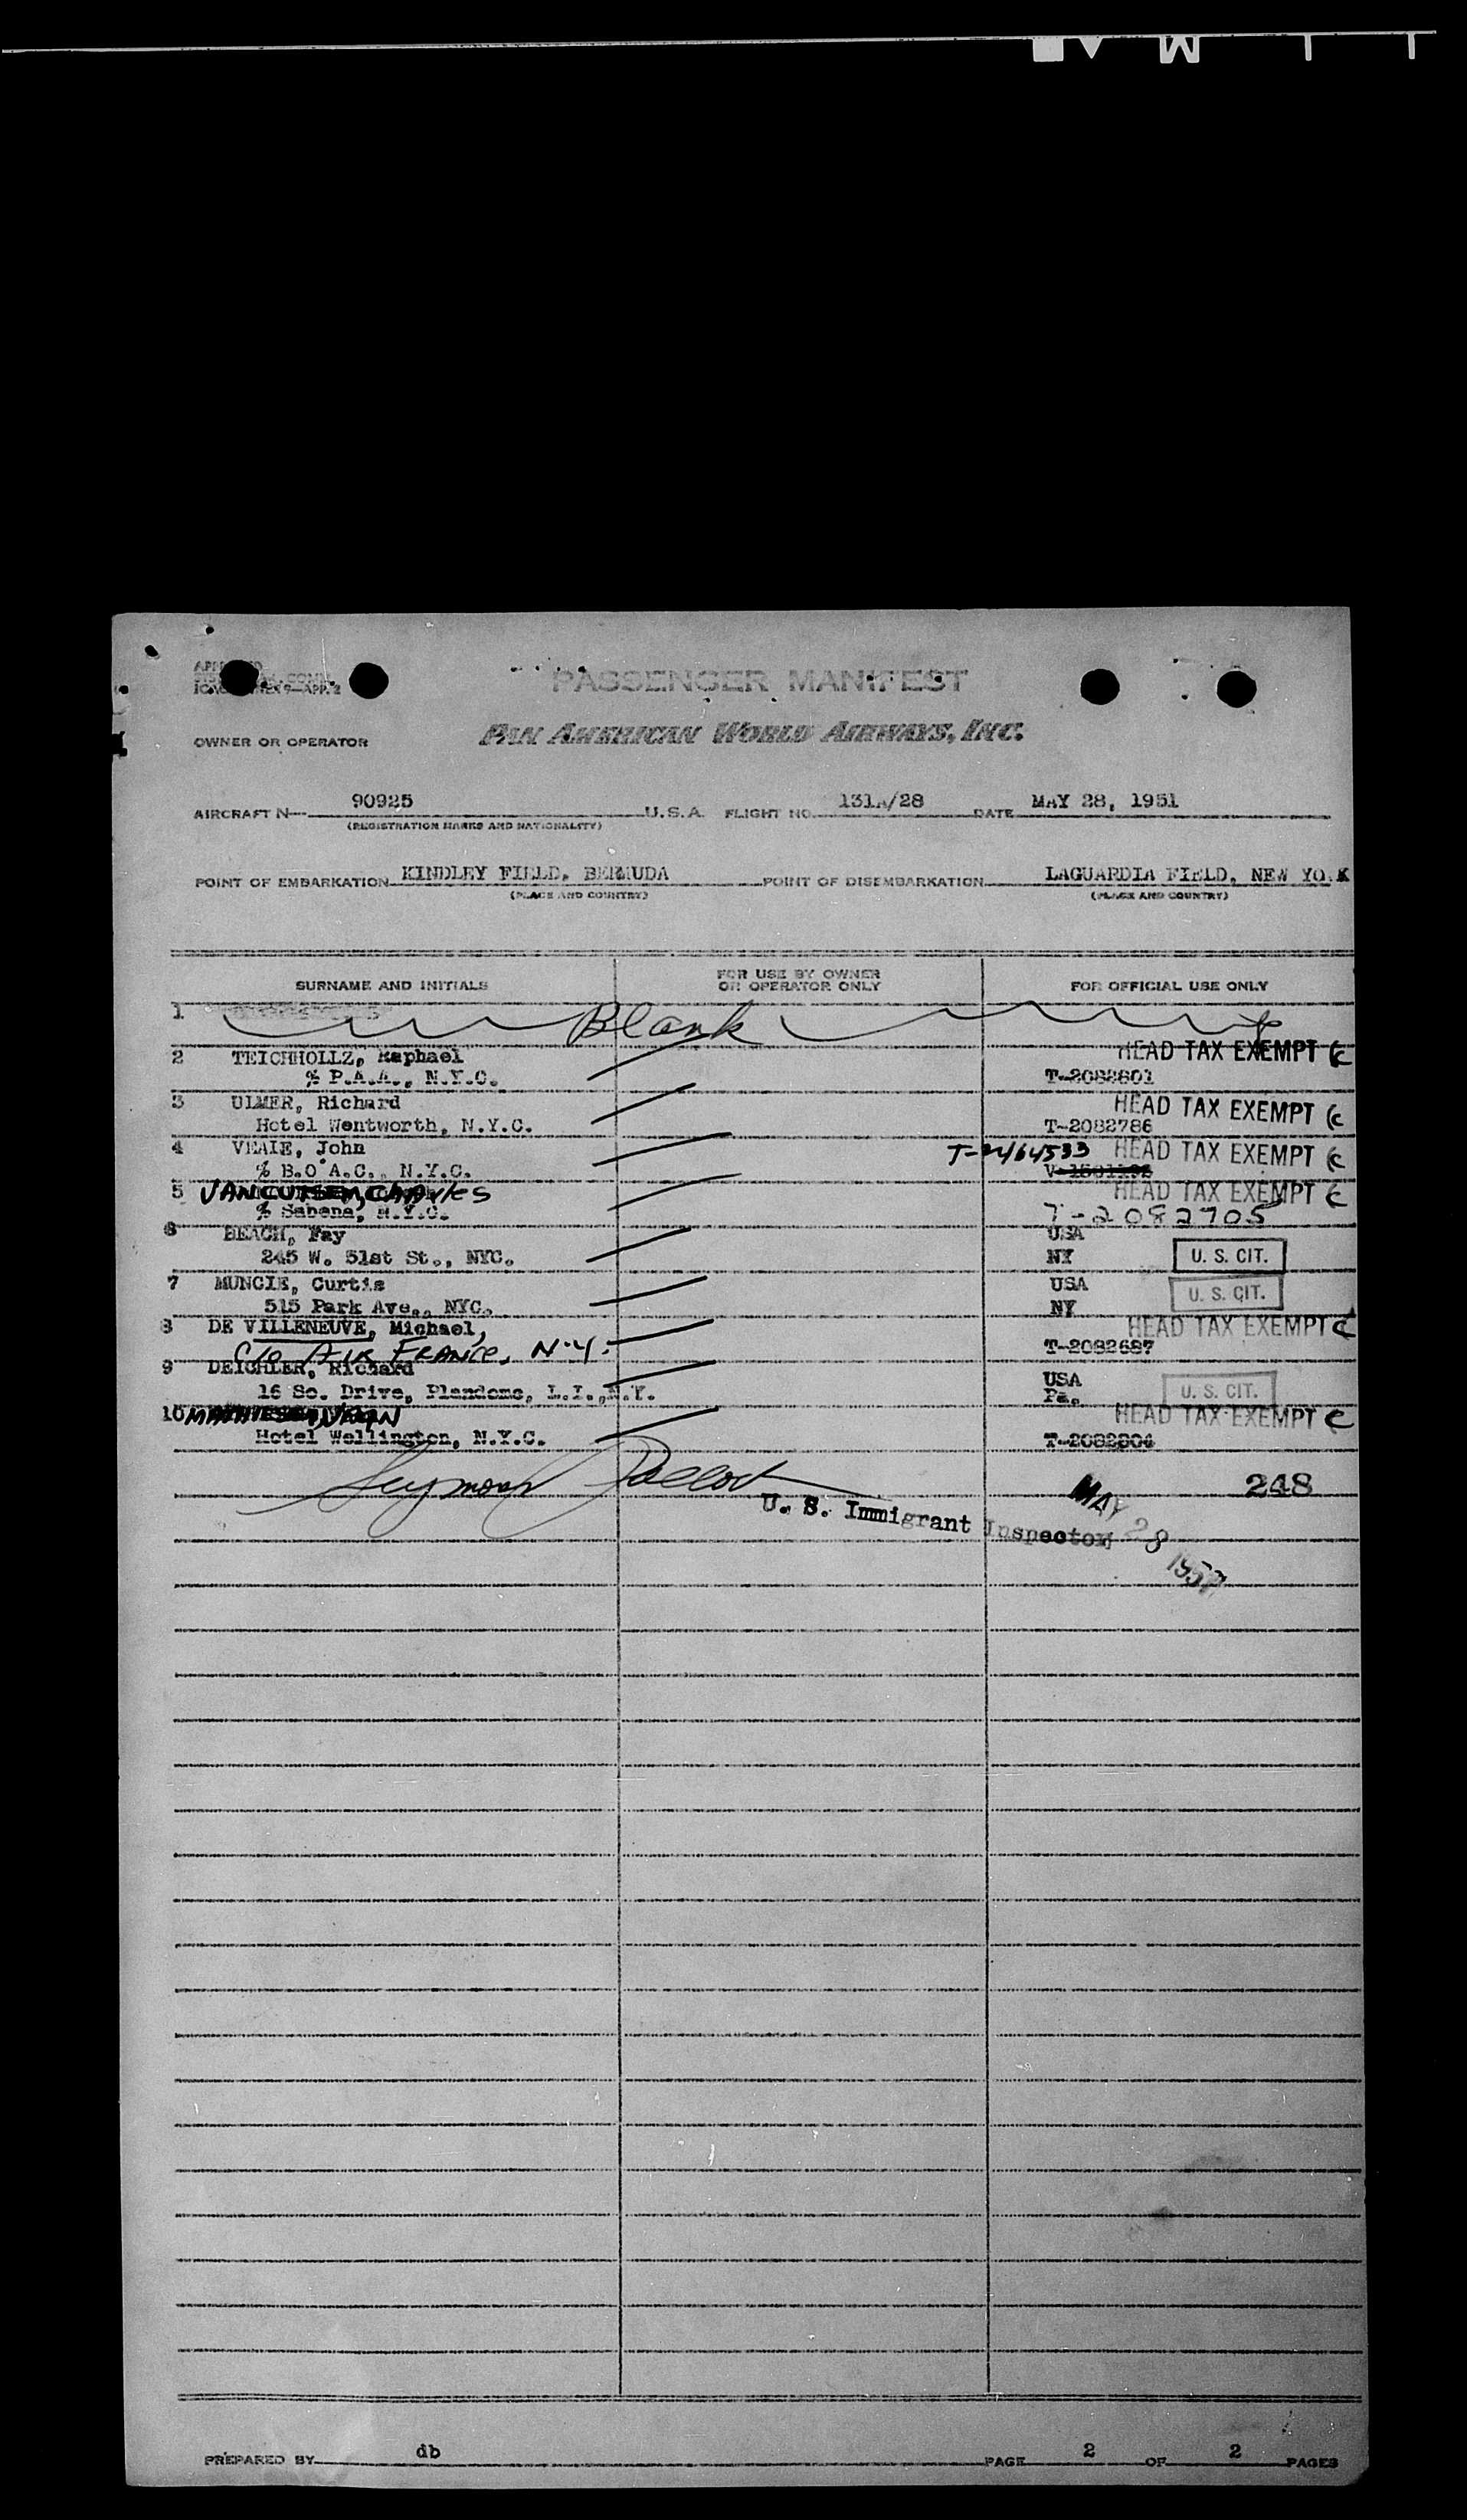 PASSENGER MANIFEST
OWNER OR OPERATOR PAN AMERICAN WORLD AIRWAYS, INC.
AIRCRAFT N 90925 U.S.A. FLIGHT NO. 131A/28 DATE MAY 28, 1951
(REGISTRATION MARKS AND NATIONALITY)
POINT OF EMBARKATION KINDLEY FIELD, BERMUDA POINT OF DISEMBARKATION LAGUARDIA FIELD, NEW YORK
(PLACE AND COUNTRY) (PLACE AND COUNTRY)
SURNAME AND INITIALS FOR USE BY OWNER OR OPERATOR ONLY FOR OFFICIAL USE ONLY
1 Blank
2 TEICHHOLLZ, Raphael HEAD TAX EXEMPT
% P.A.A., N.Y.C. T-2082801
3 ULMER, Richard HEAD TAX EXEMPT
Hotel Wentworth, N.Y.C. T-2082786
4 VEAIE, John T-2464533 HEAD TAX EXEMPT
% B.O.A.C., N.Y.C.
5 HEAD TAX EXEMPT
% Sabena, N.Y.C. T-2082705
6 BEACH, Fay USA
245 W. 51st St., NYC. NY U. S. CIT.
7 MUNCIE, Curtis USA
515 Park Ave., NYC. NY U. S. CIT.
8 DE VILLENEUVE, Michael, HEAD TAX EXEMPT
C/O AIR FRANCE, N.Y. T-2082687
9 DEICHLER, Richard USA
16 So. Drive, Plandome, L.I., N.Y. Pa. U. S. CIT.
10 HEAD TAX EXEMPT
Hotel Wellington, N.Y.C. T-2082804
Seymour Pollock 248
U. S. Immigrant Inspector MAY 28 1951
PREPARED BY db PAGE 2 OF 2 PAGES